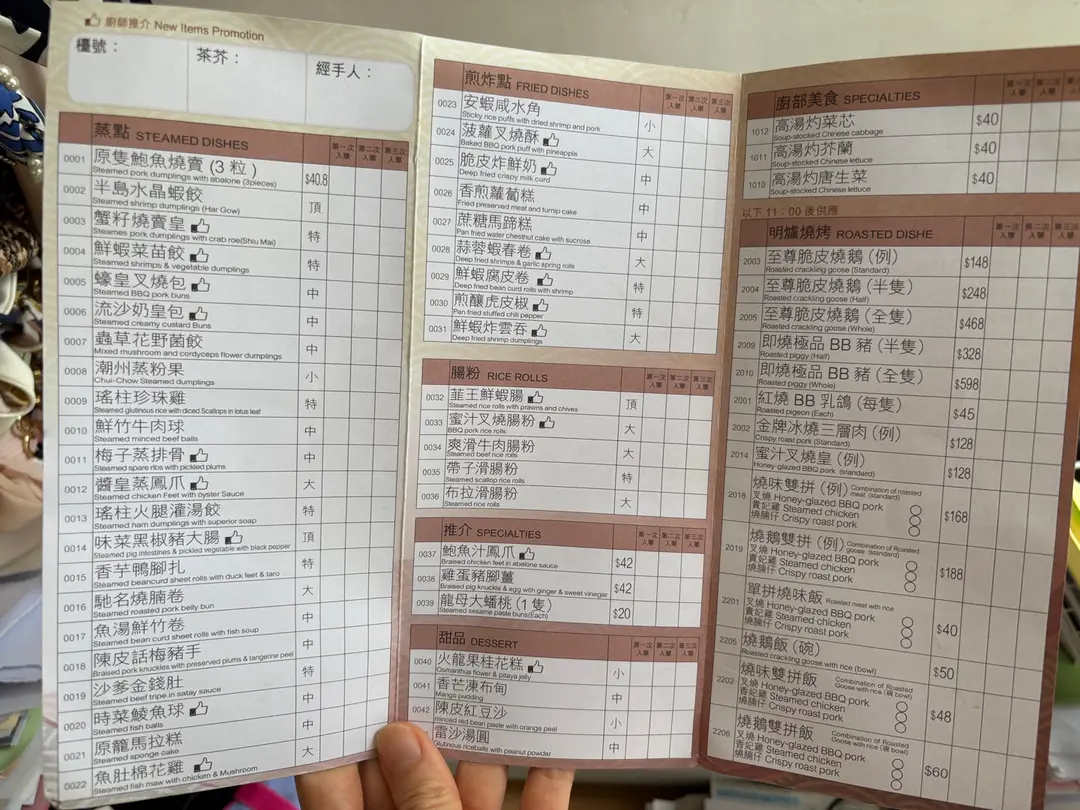 廚師推介 New Items Promotion
檯號：
茶芥：
經手人：
蒸點 STEAMED DISHES
第一次入單 第二次入單 第三次入單
0001 原隻鮑魚燒賣 (3 粒) $40.8
Steamed pork dumplings with abalone (3pieces)
0002 半島水晶蝦餃 頂
Steamed shrimp dumplings (Har Gow)
0003 蟹籽燒賣皇 特
Steames pork dumplings with crab roe(Shiu Mai)
0004 鮮蝦菜苗餃 特
Steamed shrimps & vegetable dumplings
0005 蠔皇叉燒包 中
Steamed BBQ pork buns
0006 流沙奶皇包 中
Steamed creamy custard Buns
0007 蟲草花野菌餃 中
Mixed mushroom and cordyceps flower dumplings
0008 潮州蒸粉果 小
Chui-Chow Steamed dumplings
0009 瑤柱珍珠雞 特
Steamed glutinous rice with diced Scallops in lotus leaf
0010 鮮竹牛肉球 中
Steamed minced beef balls
0011 梅子蒸排骨 中
Steamed spare ribs with pickled plums
0012 醬皇蒸鳳爪 大
Steamed chicken Feet with oyster Sauce
0013 瑤柱火腿灌湯餃 特
Steamed ham dumplings with superior soap
0014 味菜黑椒豬大腸 頂
Steamed pig intestines & pickled vegetable with black pepper
0015 香芋鴨腳扎 特
Steamed beancurd sheet rolls with duck feet & taro
0016 馳名燒腩卷 大
Steamed roasted pork belly bun
0017 魚湯鮮竹卷 中
Steamed bean curd sheet rolls with fish soup
0018 陳皮話梅豬手 中
Braised pork knuckles with preserved plums & tangerine peel
0019 沙爹金錢肚 特
Steamed beef tripe in satay sauce
0020 時菜鯪魚球 中
Steamed fish balls
0021 原籠馬拉糕 中
Steamed sponge cake
0022 魚肚棉花雞 大
Steamed fish maw with chicken & Mushroom
煎炸點 FRIED DISHES
第一次入單 第二次入單 第三次入單
0023 安蝦咸水角 小
Sticky rice puffs with dried shrimp and pork
0024 菠蘿叉燒酥 大
Baked BBQ pork puff with pineapple
0025 脆皮炸鮮奶 中
Deep fried crispy milk curd
0026 香煎蘿蔔糕 中
Fried preserved meat and turnip cake
0027 蔗糖馬蹄糕 中
Pan fried water chestnut cake with sucrose
0028 蒜蓉蝦春卷 大
Deep fried shrimps & garlic spring rolls
0029 鮮蝦腐皮卷 特
Deep fried bean curd rolls with shrimp
0030 煎釀虎皮椒 特
Pan fried stuffed chili pepper
0031 鮮蝦炸雲吞 大
Deep fried shrimp dumplings
腸粉 RICE ROLLS
第一次入單 第二次入單 第三次入單
0032 韮王鮮蝦腸 頂
Steamed rice rolls with prawns and chives
0033 蜜汁叉燒腸粉 大
BBQ pork rice rolls
0034 爽滑牛肉腸粉 大
Steamed beef rice rolls
0035 帶子滑腸粉 特
Steamed scallop rice rolls
0036 布拉滑腸粉 大
Steamed rice rolls
推介 SPECIALTIES
第一次入單 第二次入單 第三次入單
0037 鮑魚汁鳳爪 $42
Braised chicken feet in abalone sauce
0038 雞蛋豬腳薑 $42
Braised pig knuckle & egg with ginger & sweet vinegar
0039 龍母大蟠桃 (1 隻) $20
Steamed sesame paste buns(Each)
甜品 DESSERT
第一次入單 第二次入單 第三次入單
0040 火龍果桂花糕 小
Osmanthus flower & pitaya jelly
0041 香芒凍布甸 中
Mango pudding
0042 陳皮紅豆沙 小
minced red bean paste with orange peel
雷沙湯圓 中
Glutinous riceballs with peanut powder
廚部美食 SPECIALTIES
第一次入單 第二次入單 第三次入單
1012 高湯灼菜芯 $40
Soup-stocked Chinese cabbage
1011 高湯灼芥蘭 $40
Soup-stocked Chinese lettuce
1010 高湯灼唐生菜 $40
Soup-stocked Chinese lettuce
以下 11：00 後供應
明爐燒烤 ROASTED DISHE
第一次入單 第二次入單 第三次入單
2003 至尊脆皮燒鵝 (例) $148
Roasted crackling goose (Standard)
2004 至尊脆皮燒鵝 (半隻) $248
Roasted crackling goose (Half)
2005 至尊脆皮燒鵝 (全隻) $468
Roasted crackling goose (Whole)
2009 即燒極品 BB 豬 (半隻) $328
Roasted piggy (Half)
2010 即燒極品 BB 豬 (全隻) $598
Roasted piggy (Whole)
2001 紅燒 BB 乳鴿 (每隻) $45
Roasted pigeon (Each)
2002 金牌冰燒三層肉 (例) $128
Crispy roast pork (Standard)
2014 蜜汁叉燒皇 (例) $128
Honey-glazed BBQ pork (standard)
2018 燒味雙拼 (例) Combination of roasted meat (standard) $168
叉燒 Honey-glazed BBQ pork
貴妃雞 Steamed chicken
燒腩仔 Crispy roast pork
2019 燒鵝雙拼 (例) Combination of Roasted goose (standard) $188
叉燒 Honey-glazed BBQ pork
貴妃雞 Steamed chicken
燒腩仔 Crispy roast pork
2201 單拼燒味飯 Roasted meat with rice $40
叉燒 Honey-glazed BBQ pork
貴妃雞 Steamed chicken
燒腩仔 Crispy roast pork
2205 燒鵝飯 (碗) $50
Roasted crackling goose with rice (bowl)
2202 燒味雙拼飯 Combination of Roasted Goose with rice (碗 bowl) $48
叉燒 Honey-glazed BBQ pork
香妃雞 Steamed chicken
燒腩仔 Crispy roast pork
2206 燒鵝雙拼飯 Combination of Roasted Goose with rice (碗 bowl) $60
叉燒 Honey-glazed BBQ pork
香妃雞 Steamed chicken
燒腩仔 Crispy roast pork